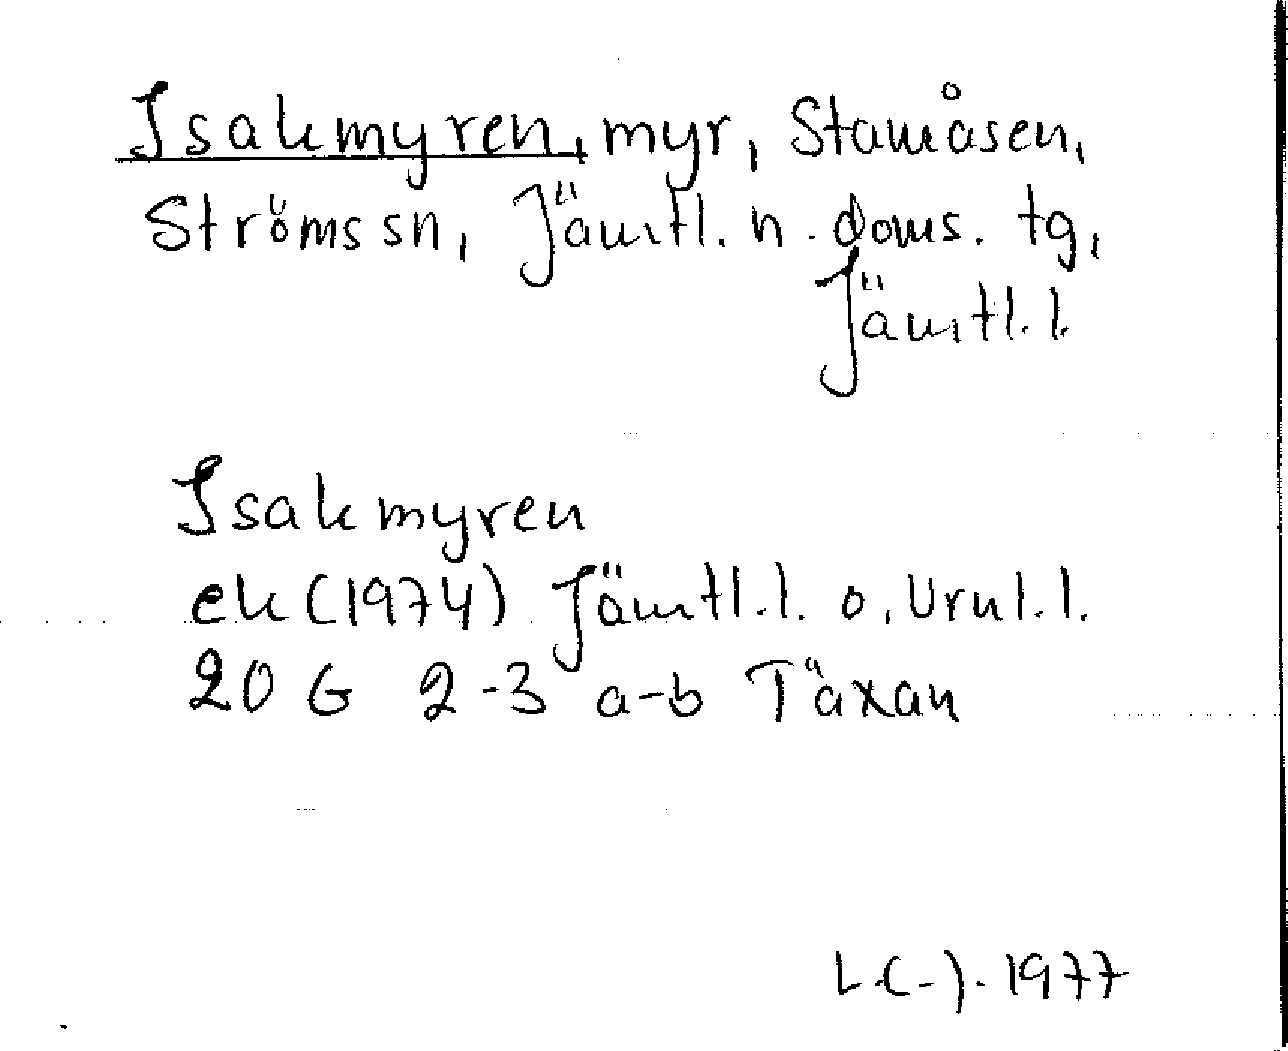 Isakmyren, myr, Stamåsen,
Ströms sn, Jämtl. n. doms. tg,
Jämtl. l.
Isakmyren
ek (1974) Jämtl. l. o. Vrnl. l.
20 G 2-3 a-b Täxan
1977